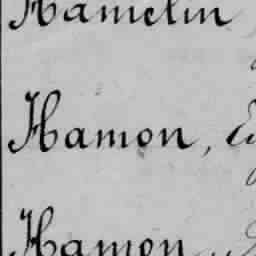 Hamelin
Hamon,
Hamon